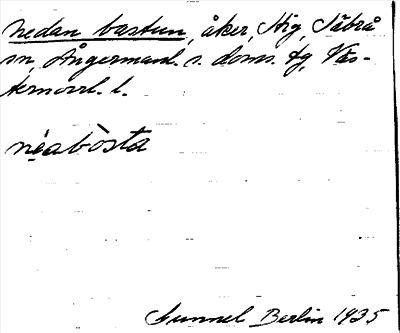 nedan bastun, åker, Hig, Säbrå
sn, Ångermanl. s. doms. tg, Väs-
ternorrl. l.
nèabòsta
Gunnel Berlin 1935